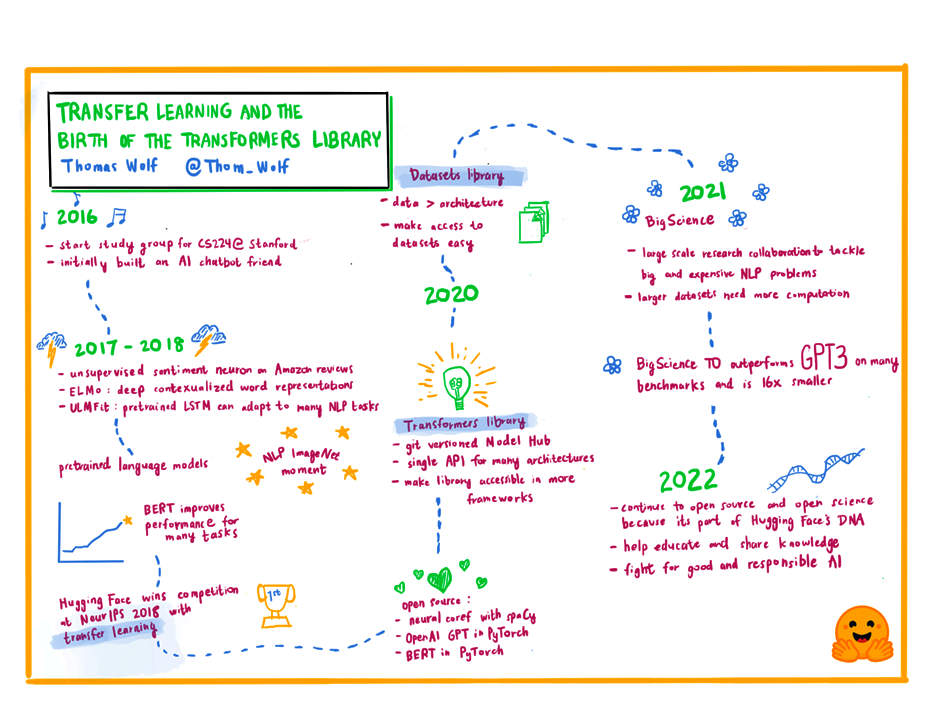 TRANSFER LEARNING AND THE
BIRTH OF THE TRANSFORMERS LIBRARY
Thomas Wolf @Thom_Wolf
2016
- start study group for CS224@ Stanford
- initially built an AI chatbot friend
2017 - 2018
- unsupervised sentiment neuron on Amazon reviews
- ELMo : deep contextualized word representations
- ULMFit : pretrained LSTM can adapt to many NLP tasks
pretrained language models
NLP ImageNet
moment
BERT improves
performance for
many tasks
Hugging Face wins competition
at NeurIPS 2018 with
transfer learning
1st
open source :
- neural coref with spaCy
- OpenAI GPT in PyTorch
- BERT in PyTorch
Transformers library
- git versioned Model Hub
- single API for many architectures
- make library accessible in more
frameworks
2020
Datasets library
- data > architecture
- make access to
datasets easy
2021
BigScience
- large scale research collaboration to tackle
big and expensive NLP problems
- larger datasets need more computation
BigScience T0 outperforms GPT3 on many
benchmarks and is 16x smaller
2022
- continue to open source and open science
because its part of Hugging Face's DNA
- help educate and share knowledge
- fight for good and responsible AI